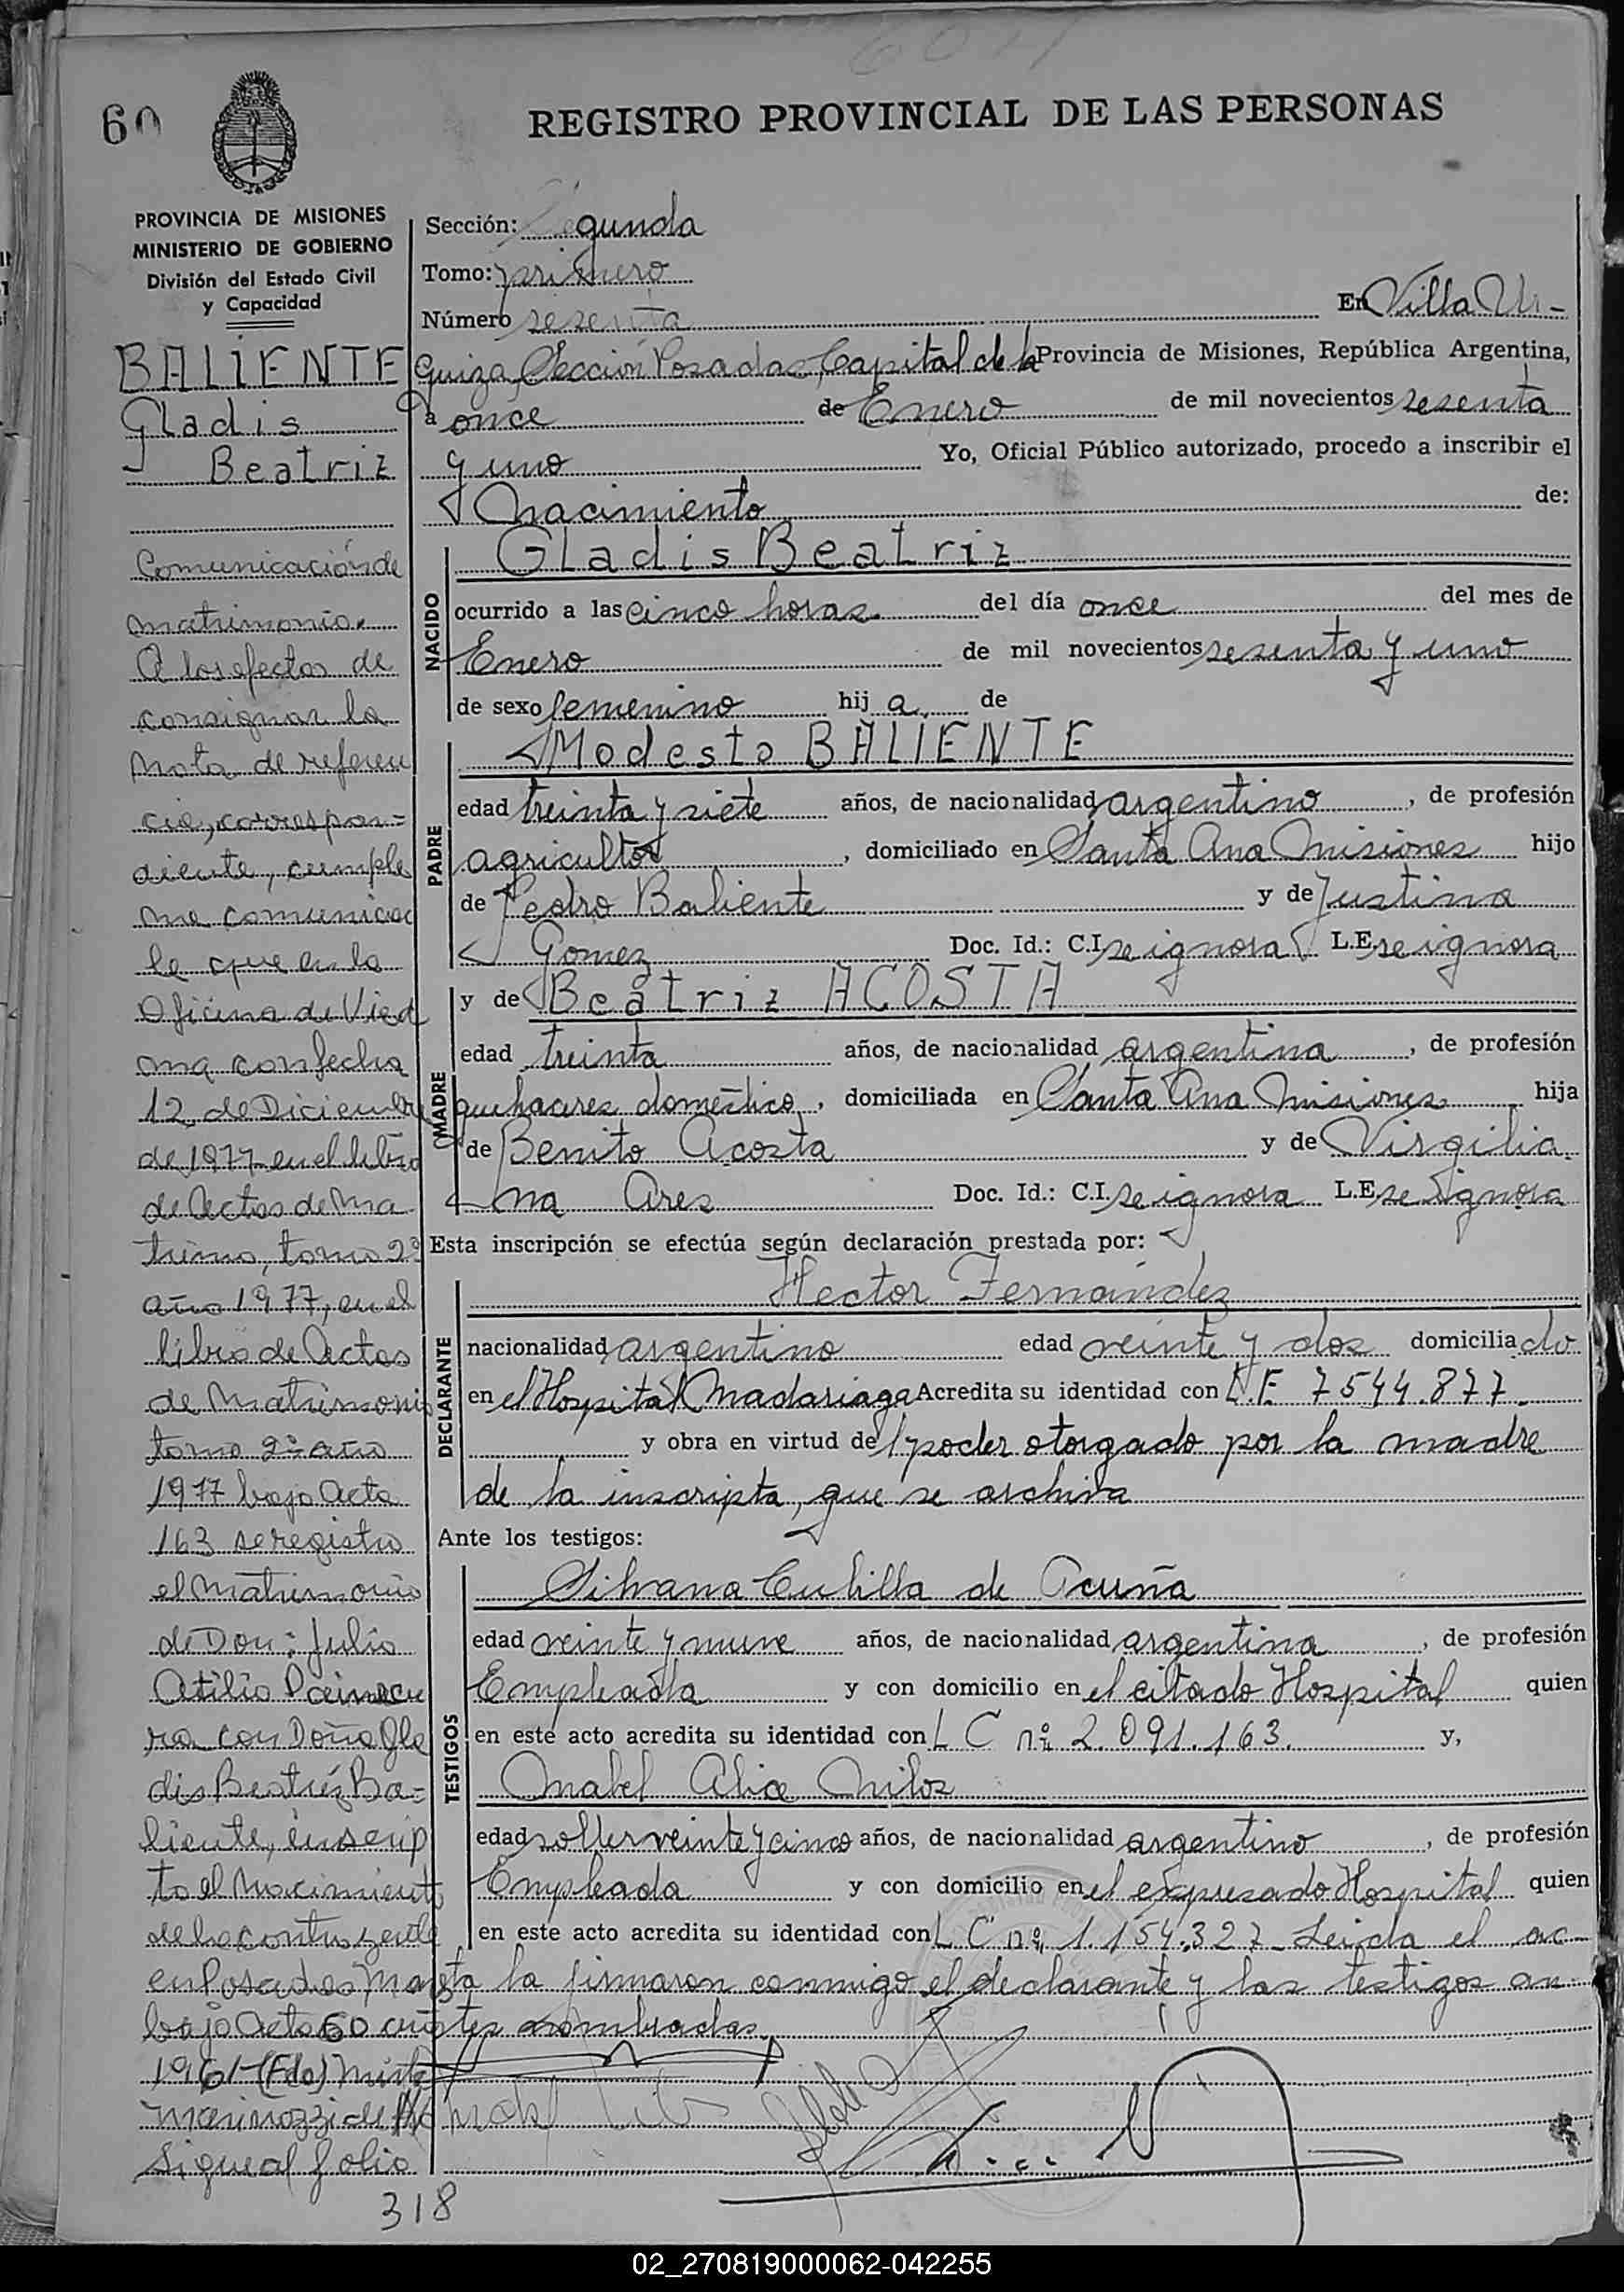 60
REGISTRO PROVINCIAL DE LAS PERSONAS
PROVINCIA DE MISIONES
MINISTERIO DE GOBIERNO
División del Estado Civil
y Capacidad
BALIENTE
Gladis
Beatriz
Comunicación de
matrimonio.
A los efectos de
consignar la
Nota de referen
cia, correspon=
diente, cumple
me comunicar
le que en la
Oficina de Vied
ma con fecha
12 de Diciembre
de 1977 en el libro
de Actas de Ma
trimo, tomo 2º
año 1977, en el
libro de Actas
de Matrimonio
tomo 2º año
1977 bajo Acta
163 se registro
el Matrimonio
de Don: Julio
Atilio
ra con Doña Gla
dis Beatriz Ba=
liente, inscrip
to el Nacimiento
de la contrayente
en Posadas
bajo Acta 60
1961-(Fdo)
Sigue al folio
318
Sección: Segunda
Tomo: primero
Número sesenta En Villa Ur-
quiza, Sección Posadas, Capital de la Provincia de Misiones, República Argentina,
a once de Enero de mil novecientos sesenta
y uno Yo, Oficial Público autorizado, procedo a inscribir el
Nacimiento de:
NACIDO
Gladis Beatriz
ocurrido a las cinco horas del día once del mes de
Enero de mil novecientos sesenta y uno
de sexo femenino hij a de
PADRE
Modesto BALIENTE
edad treinta y siete años, de nacionalidad argentino, de profesión
agricultor, domiciliado en Santa Ana Misiones hijo
de Pedro Baliente y de Justina
Gomez Doc. Id.: C.I. se ignora L.E. se ignora
MADRE
y de Beatriz ACOSTA
edad treinta años, de nacionalidad argentina, de profesión
quehaceres doméstico, domiciliada en Santa Ana Misiones hija
de Benito Acosta y de Virgilia
na Ares Doc. Id.: C.I. se ignora L.E. se ignora
Esta inscripción se efectúa según declaración prestada por:
DECLARANTE
Hector Fernández
nacionalidad argentino edad veinte y dos domiciliado
en el Hospital Madariaga Acredita su identidad con L.E. 7544.877
y obra en virtud del poder otorgado por la madre
de la inscripta, que se archiva
Ante los testigos:
TESTIGOS
Silvana Cubilla de Acuña
edad veinte y nueve años, de nacionalidad argentina, de profesión
Empleada y con domicilio en el citado Hospital quien
en este acto acredita su identidad con L C nº 2.091.163. y,
Mabel Alice Milos
edad soltera veinte y cinco años, de nacionalidad argentino, de profesión
Empleada y con domicilio en el expresado Hospital quien
en este acto acredita su identidad con L C nº 1.154.327 - Leida el ac-
ta la firmaron conmigo el declarante y las testigos an
tes nombradas
02_270819000062-042255